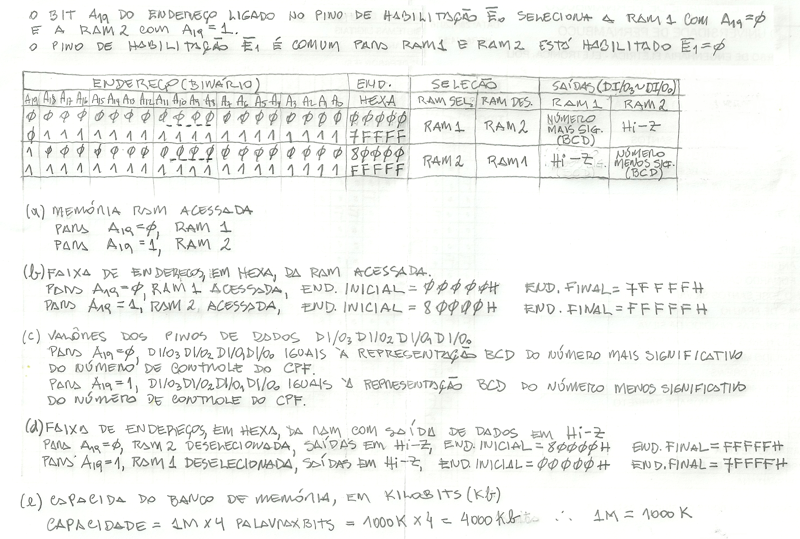 O BIT A19 DO ENDEREÇO LIGADO NO PINO DE HABILITAÇÃO E̅0 SELECIONA A RAM 1 COM A19=φ
E A RAM 2 COM A19=1.
O PINO DE HABILITAÇÃO E̅1 É COMUM PARA RAM1 E RAM2 ESTÁ HABILITADO E̅1=φ
ENDEREÇO (BINÁRIO) END. SELEÇÃO SAÍDAS (DI/O3~DI/O0)
A19 A18 A17 A16 A15 A14 A13 A12 A11 A10 A9 A8 A7 A6 A5 A4 A3 A2 A1 A0 HEXA RAM SEL. RAM DES. RAM 1 RAM 2
φ φ φ φ φ φ φ φ φ φ φ φ φ φ φ φ φ φ φ φ φφφφφ RAM 1 RAM 2 NÚMERO MAIS SIG. (BCD) Hi-Z
φ 1 1 1 1 1 1 1 1 1 1 1 1 1 1 1 1 1 1 1 7FFFF
1 φ φ φ φ φ φ φ φ φ φ φ φ φ φ φ φ φ φ φ 8φφφφ RAM 2 RAM 1 Hi-Z NÚMERO MENOS SIG. (BCD)
1 1 1 1 1 1 1 1 1 1 1 1 1 1 1 1 1 1 1 1 FFFFF
(a) MEMÓRIA RAM ACESSADA
PARA A19=φ, RAM 1
PARA A19=1, RAM 2
(b) FAIXA DE ENDEREÇOS, EM HEXA, DA RAM ACESSADA.
PARA A19=φ, RAM 1 ACESSADA, END. INICIAL = φφφφφH END. FINAL = 7FFFFH
PARA A19=1, RAM 2 ACESSADA, END. INICIAL = 8φφφφH END. FINAL = FFFFFH
(c) VALORES DOS PINOS DE DADOS DI/O3 DI/O2 DI/O1 DI/O0
PARA A19=φ, DI/O3 DI/O2 DI/O1 DI/O0 IGUAIS À REPRESENTAÇÃO BCD DO NÚMERO MAIS SIGNIFICATIVO
DO NÚMERO DE CONTROLE DO CPF.
PARA A19=1, DI/O3 DI/O2 DI/O1 DI/O0 IGUAIS À REPRESENTAÇÃO BCD DO NÚMERO MENOS SIGNIFICATIVO
DO NÚMERO DE CONTROLE DO CPF.
(d) FAIXA DE ENDEREÇOS, EM HEXA, DA RAM COM SAÍDA DE DADOS EM Hi-Z
PARA A19=φ, RAM 2 DESELECIONADA, SAÍDAS EM Hi-Z, END. INICIAL = 8φφφφH END. FINAL = FFFFFH
PARA A19=1, RAM 1 DESELECIONADA, SAÍDAS EM Hi-Z, END. INICIAL = φφφφφH END. FINAL = 7FFFFH
(e) CAPACIDA DO BANCO DE MEMÓRIA, EM KILOBITS (Kb)
CAPACIDADE = 1M X 4 PALAVRAXBITS = 1000K X 4 = 4000Kb ∴ 1M = 1000K